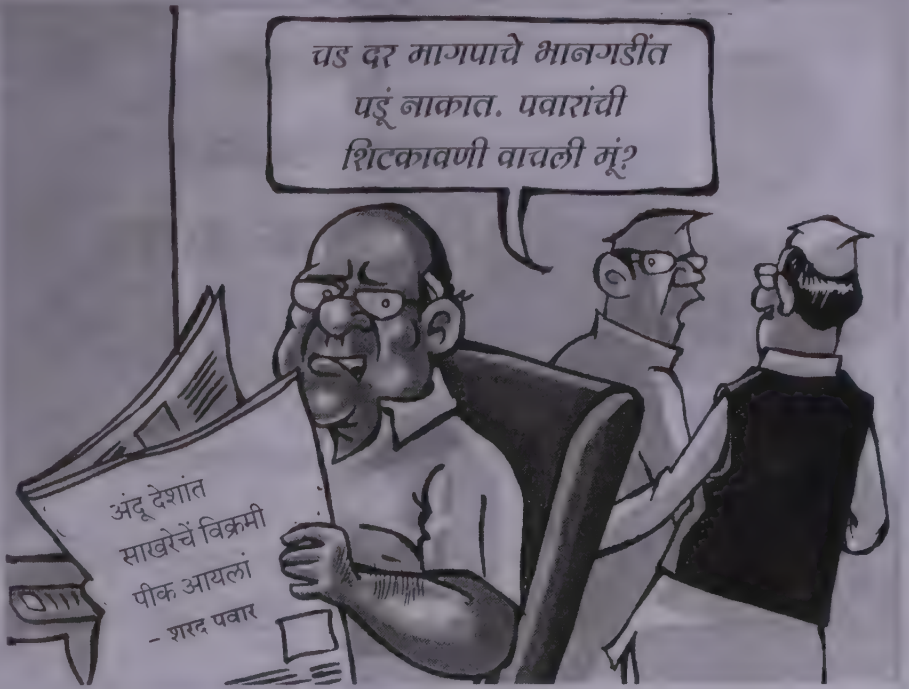 चड दर मागपाचे भानगडींत
पडूं नाकात. पवारांची
शिटकावणी वाचली मूं?
अंदू देशांत
साखरेचें विक्रमी
पीक आयलां
- शरद पवार